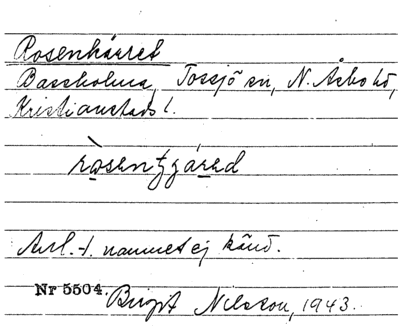 Rosenhäret
Bassholma, Tossjö sn, N. Åsbo hd,
Kristianstads l.
ròsentgáred
Anl. t. namnet ej känd.
Nr 5504. Birgit Nilsson, 1943.